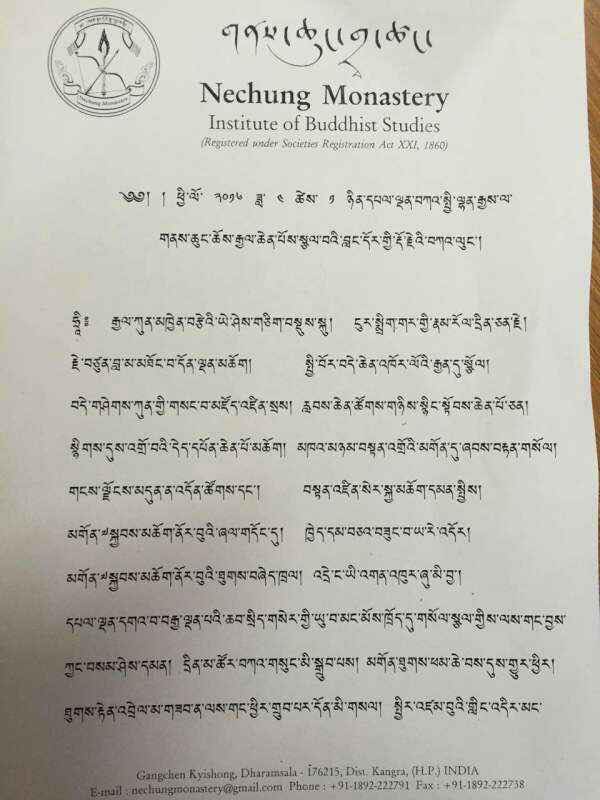 གནས་ཆུང་གྲྭ་ཚང་།
Nechung Monastery
Nechung Monastery
Institute of Buddhist Studies
(Registered under Societies Registration Act XXI, 1860)
༄༅། ། ཕྱི་ལོ་ ༢༠༡༦ ཟླ་ ༤ ཚེས་ ༡ ཉིན་དཔལ་ལྡན་བཀའ་སྤྱི་ལྷན་རྒྱས་ལ་
གནས་ཆུང་ཆོས་རྒྱལ་ཆེན་པོས་སྩལ་བའི་བླང་དོར་གྱི་རྡོ་རྗེའི་བཀའ་ལུང་།
ཧྲཱིཿ རྒྱལ་ཀུན་མཁྱེན་བརྩེའི་ཡེ་ཤེས་གཅིག་བསྡུས་སྐུ། ངུར་སྨྲིག་གར་གྱི་རྣམ་རོལ་དྲིན་ཅན་རྗེ།
རྗེ་བཙུན་བླ་མ་མཐོང་བ་དོན་ལྡན་མཆོག སྤྱི་བོར་བདེ་ཆེན་འཁོར་ལོའི་རྒྱན་དུ་སྩོལ།
བདེ་གཤེགས་ཀུན་གྱི་གསང་བ་མཛོད་འཛིན་སྲས། རླབས་ཆེན་ཚོགས་གཉིས་སྙིང་སྟོབས་ཆེན་པོ་ཅན།
སྙིགས་དུས་འགྲོ་བའི་དེད་དཔོན་ཆེན་པོ་མཆོག མཁའ་མཉམ་བསྟན་འགྲོའི་མགོན་དུ་ཞབས་བརྟན་གསོལ།
གངས་ལྗོངས་མདུན་ན་འདོན་ཚོགས་དང་། བསྟན་འཛིན་སེར་སྐྱ་མཆོག་དམན་སྤྱིས།
མགོན་༧སྐྱབས་མཆོག་ནོར་བུའི་ཞལ་གདོང་དུ། ཁྱེད་དམ་བཅའ་བཟུང་བ་ཡ་རེ་འདོར།
མགོན་༧སྐྱབས་མཆོག་ནོར་བུའི་ཐུགས་བཞེད་ཁྲལ། འདྲེ་ང་ཡི་འགན་འཁུར་ཞུ་མི་བྱ་།
དཔལ་ལྡན་དགའ་བ་བརྒྱ་ལྡན་པའི་ཆབ་སྲིད་གསེར་གྱི་ཡུ་བ་མང་མོས་ཁྲོད་དུ་གསོལ་སྩལ་གྱིས་ལས་གང་བྱས་
ཀྱང་བསམ་ཤེས་དམན། དྲིན་མ་ཚོར་བཀའ་གསུང་མི་སྒྲུབ་པས། མགོན་ཐུགས་ཕམ་ཆེ་བས་དུས་གྱུར་ཕྱིར།
ཐུགས་རྟེན་འབྲེལ་མ་གཟབ་ན་ལས་གང་ཕྱིར་གྲུབ་པར་དོན་མི་གསལ། སྤྱིར་འཛམ་བུའི་གླིང་འདིར་མང་
Gangchen Kyishong, Dharamsala - 176215, Dist. Kangra, (H.P.) INDIA
E-mail : nechungmonastery@gmail.com Phone : +91-1892-222791 Fax : +91-1892-222738